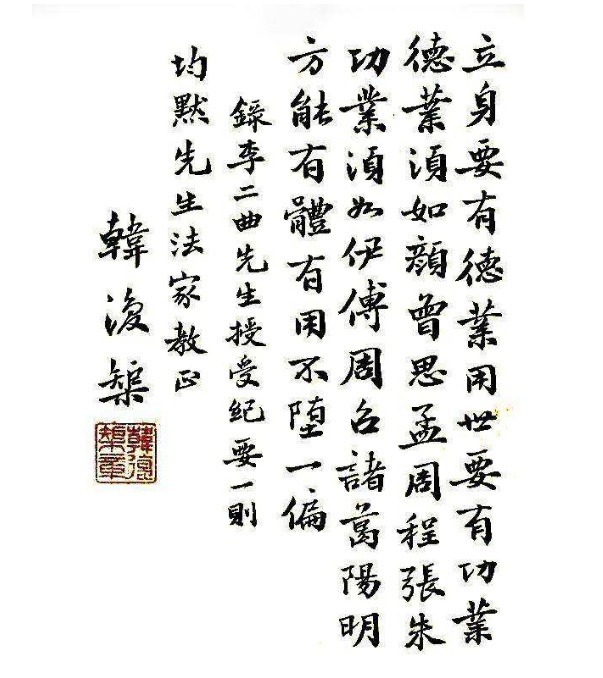 立身要有德業用世要有功業
德業湏如顔曾思孟周程張朱
功業湏如伊傅周召諸葛陽明
方能有體有用不堕一偏
錄李二曲先生授受紀要一則
均默先生法家教正
韓復榘
韓復榘章